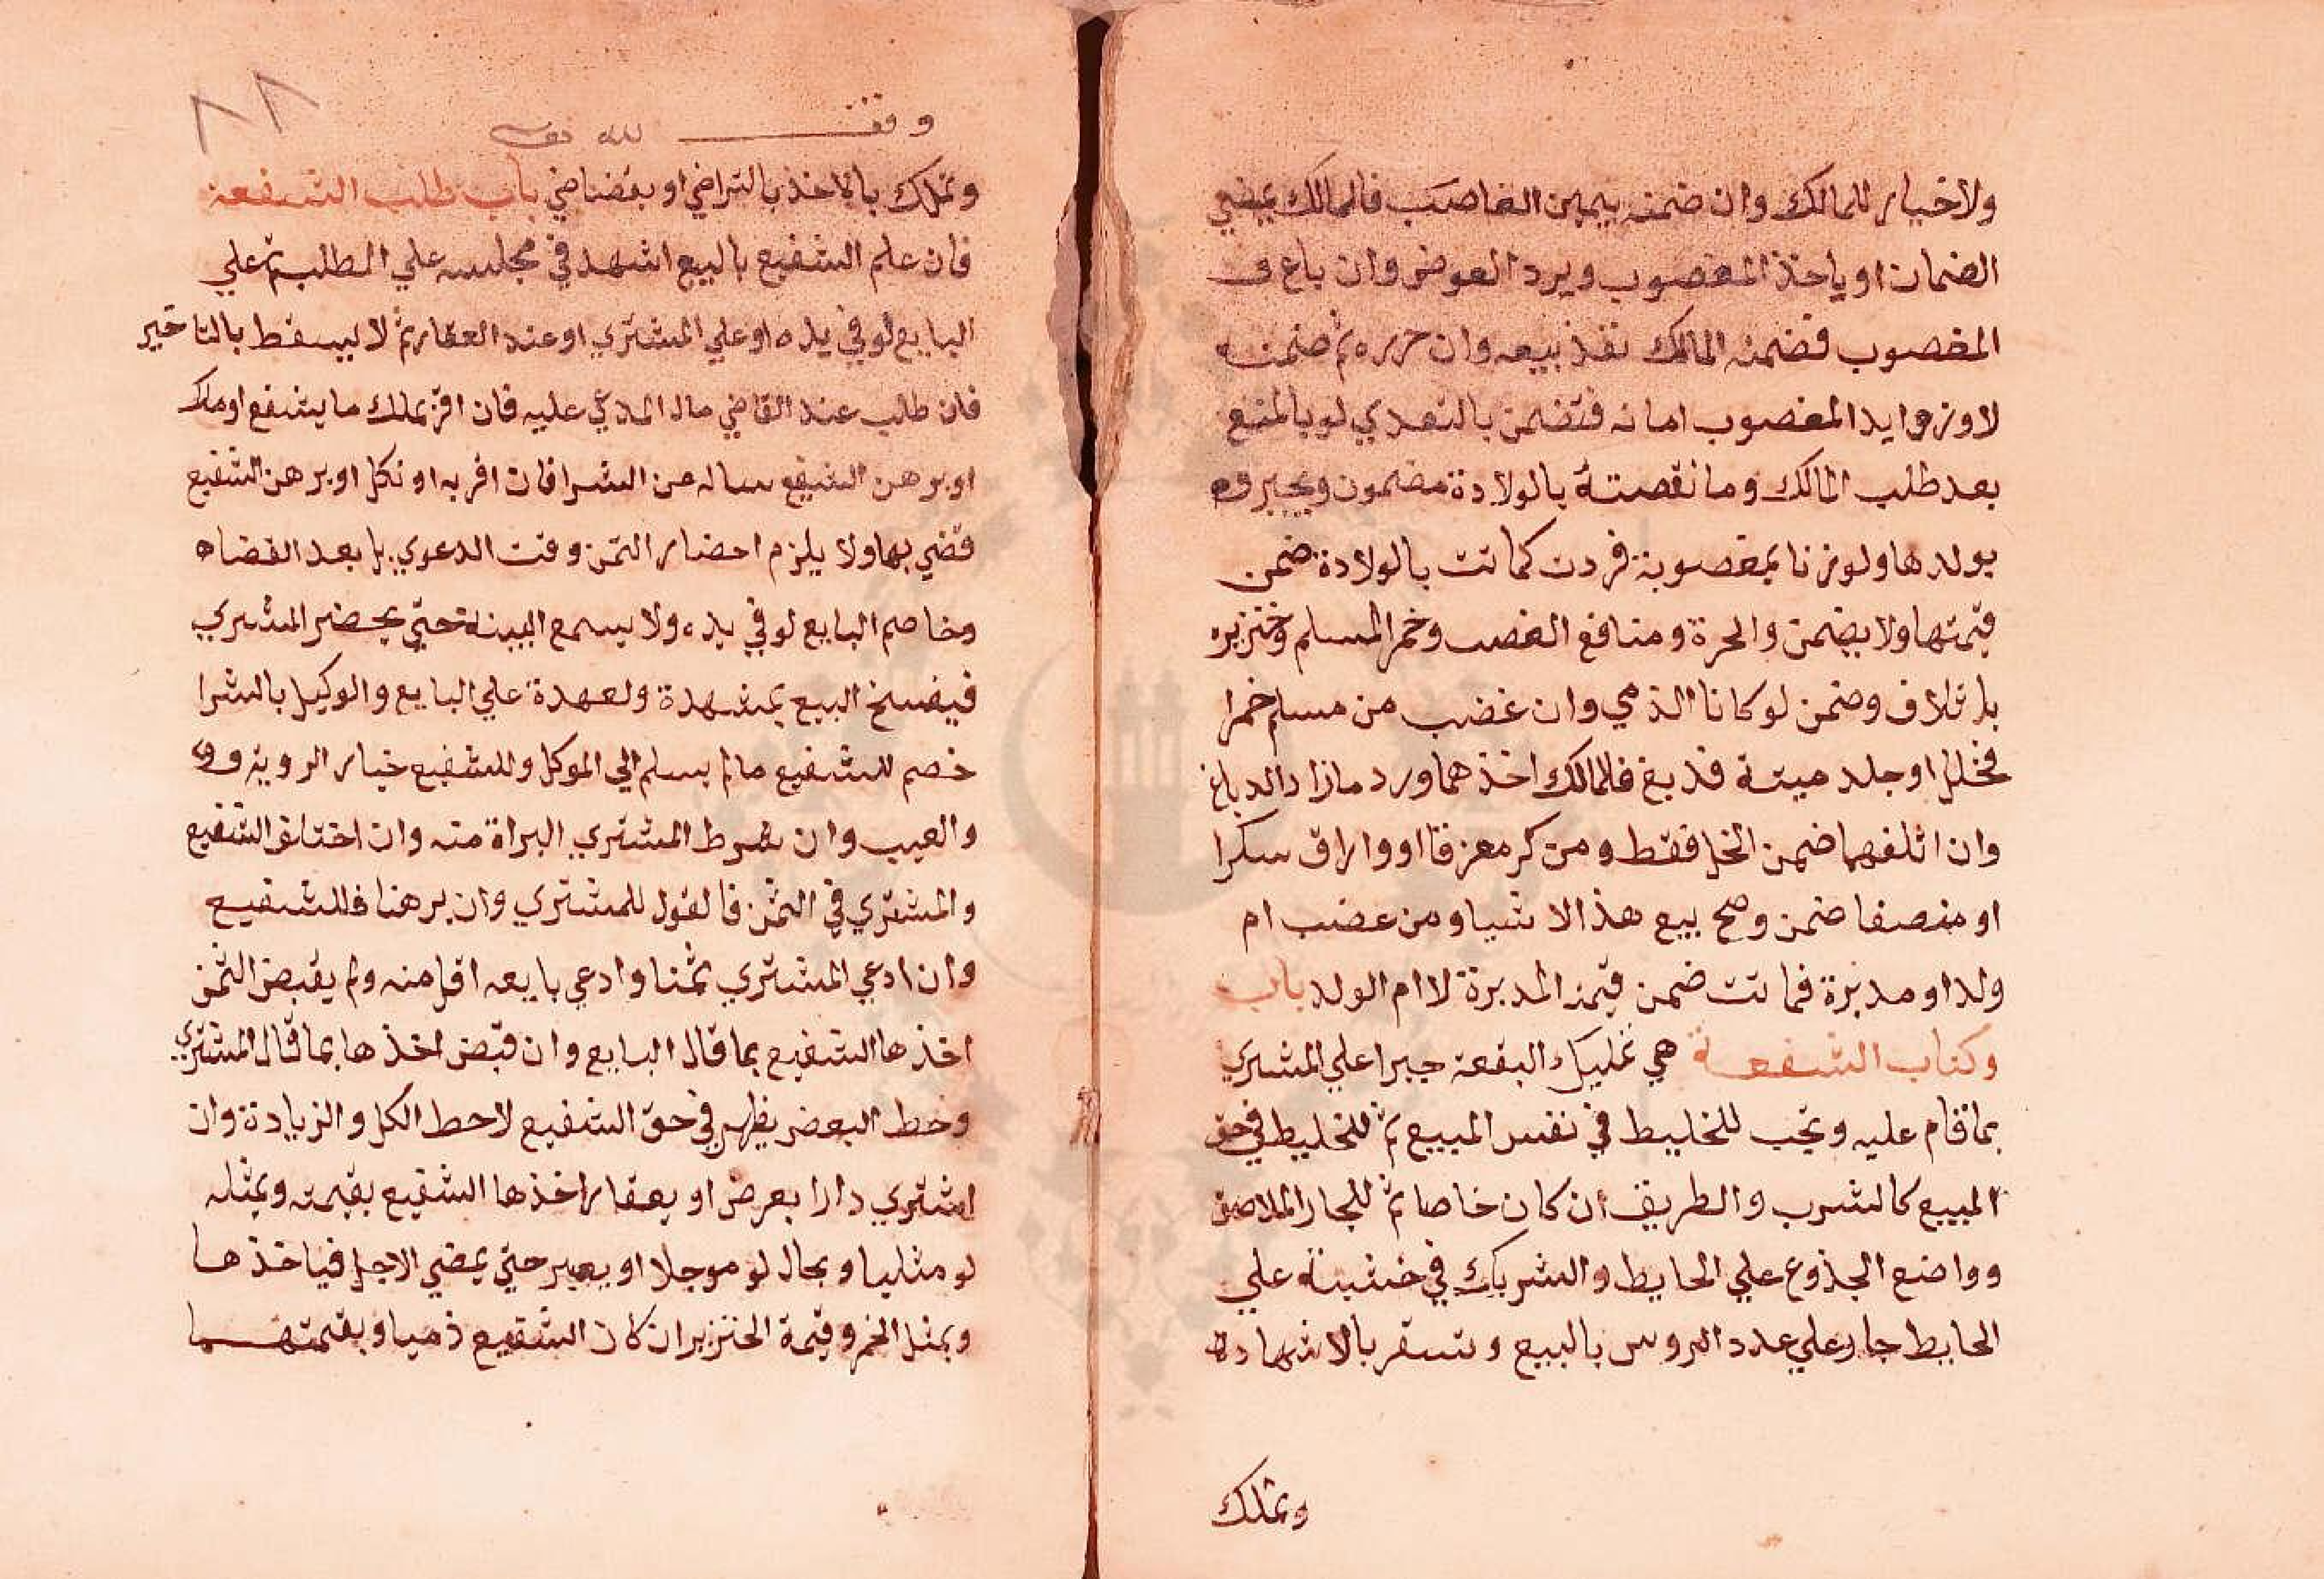 ولاخيار للمالك وان ضمنه بيمين الغاصب فالمالك يمضي
الضمان او ياخذ المغصوب ويرد العوض وان باع
المغصوب فضمنه المالك نفذ بيعه وان حرره ثم ضمنه
لا وزوايد المغصوب امانه فتضمن بالتعدي لو بالمنع
بعد طلب المالك وما نقصته بالولادة مضمون ويجبر
بولدها ولو زنا بمغصوبة فردت كماتت بالولادة ضمن
قيمتها ولا يضمن والحرة ومنافع الغصب وخمر المسلم وخنزيره
باتلاف وضمن لو كانا الذمي وان غضب من مسلم خمرا
فخلل او جلد ميتة فدبغ فللمالك اخذهما ورد مازاد الدباغ
وان اتلفهما ضمن الخل فقط ومن كسر معزفا او واراق سكرا
او منصفا ضمن وصح بيع هذا الاشيا ومن غضب ام
ولد او مدبرة فماتت ضمن قيمة المدبرة لا ام الولد باب
وكتاب الشفعة هي تمليك البقعة جبرا علي المشري
بماقام عليه وتجب للخليط في نفس المبيع ثم للخليط في حق
المبيع كالشرب والطريق ان كان خاصا ثم للجار الملاصق
وواضع الجذوع علي الحايط والشريك في خشبة علي
الحايط جار وعلي عدد الروس بالبيع وتستقر بالاشهاده
وتملك
وقف لله تعالى
وتملك بالاخذ بالتراضي او بقضاضي باب طلب الشفعة
فان علم الشفيع بالبيع اشهد في مجلسه علي الطلب ثم علي
البايع لو في يده او علي المشتري او عند العقار ثم لا ليسقط بالتاخير
فان طلب عند القاضي سال المدعي عليه فان اقر بملك مايشفع او ملك
او برهن الشفيع ساله من الشرا فان اقر به او نكل او برهن الشفيع
قضي بها ولا يلزم احضار الثمن وقت الدعوي بل بعد القضاه
وخاصم البايع لو في يده ولا يسمع البينة حتي يحضر المشري
فيفسخ البيع بمشهدة ولعهدة علي البايع والوكيل بالشرا
خصم للشفيع مالم يسلم الي الموكل وللشفيع خيار الروية
والعيب وان شرط المشتري البراة منه وان اختلف الشفيع
والمشتري في الثمن فالقول للمشتري وان برهنا فللشفيع
وان ادعي المشتري ثمنا وادعي بايعه اقل منه ولم يقبض الثمن
اخذها الشفيع بما قال البايع وان قبض اخذها بما قال المشتري
وحط البعض يظهر في حق الشفيع لا حط الكل والزيادة وان
اشتري دارا بعرض او بعقار اخذها الشفيع بقيمته وبمثله
لو مثليا وبحال لو موجلا او يصبر حتي يمضي الاجل فياخذها
وبمثل الخمر وقيمة الخنزير ان كان الشفيع ذميا وبقيمتهما